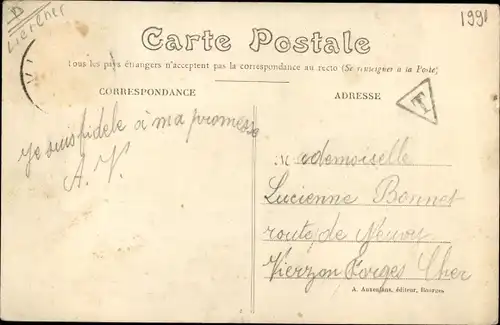 1991
Carte Postale
Tous les pays étrangers n'acceptent pas la correspondance au recto (Se renseigner à la Poste)
CORRESPONDANCE
ADRESSE
T
Je suis fidele à ma promesse
A. V.
Mademoiselle
Lucienne Bonnet
route de Neuvy
Vierzon Forges Cher
A. Auxenfans, éditeur, Bourges